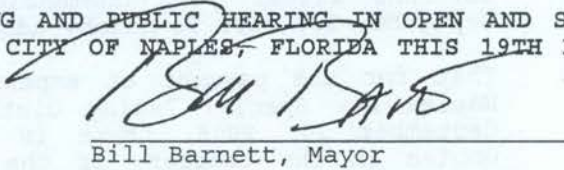 G AND PUBLIC HEARING IN OPEN AND S
CITY OF NAPLES, FLORIDA THIS 19TH
Bill Barnett
Bill Barnett, Mayor